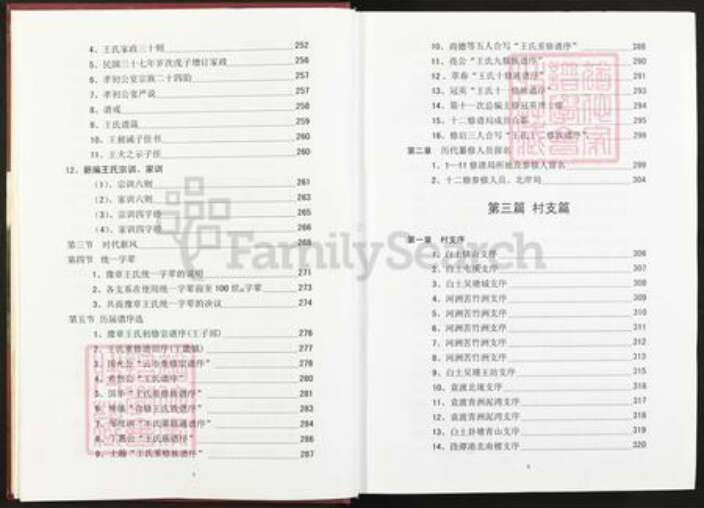 4、王氏家政三十则 252
5、民国三十七年岁次戊子增订家政 256
6、孝初公宴宗族二十四韵 257
7、孝初公家严说 257
8、谱戒 258
9、王氏谱箴 259
10、王昶诫子侄书 260
11、王夫之示子侄 260
12、新编王氏宗训、家训
(1)、宗训六则 261
(2)、家训六则 263
(3)、宗训四字经 265
(4)、家训四字经 266
第三节 时代新风 268
第四节 统一字辈
1、豫章王氏统一字辈的说明 271
2、各支系在使用统一字辈前至100世字辈 273
3、共商豫章王氏统一字辈的决议 274
第五节 历届谱序选
1、豫章王氏初修宗谱序(王子邱) 276
2、王氏重修谱旧序 277
279
"王氏谱序" 280
5、国华"王氏重修族谱序" 281
"合修王氏族谱序" 283
"王氏重修通谱序" 284
"王氏族谱序" 286
"王氏重修族谱序" 287
FamilySearch
10、尚德等五人合写"王氏重修谱序" 288
11、亮公"王氏九修族谱序" 290
12、萃春"王氏十修族谱序" 291
13、冠英"王氏十一修族谱序" 293
14、第十一次总编主修冠英博士部 294
15、十二修谱局成员合影 295
16、修启三人合写"王氏十二修族谱序" 296
第二章 历代纂修人员留名
1、1—11修谱局所地及参修人留名 299
2、十二修参修人员、北岸局 304
第三篇 村支篇
第一章 村支序
1、白土镇山支序 306
2、白土屯溪支序 308
3、白土吴塘城支序 309
4、河洲苦竹洲支序 309
5、河洲苦竹洲支序 310
6、河洲苦竹洲支序 311
7、河洲苦竹洲支序 312
8、河洲苦竹洲支序 313
9、白土吴塘王坊支序 315
10、袁渡北坡支序 316
11、袁渡青洲泥湾支序 317
12、袁渡青洲泥湾支序 318
13、白土卦塘青山支序 319
14、段潭港北南楼支序 320